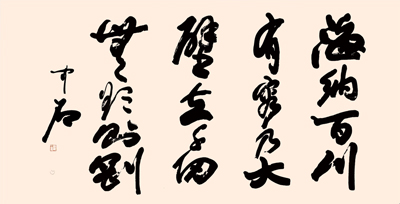 海纳百川
有容乃大
壁立千仞
無欲则刚
中石